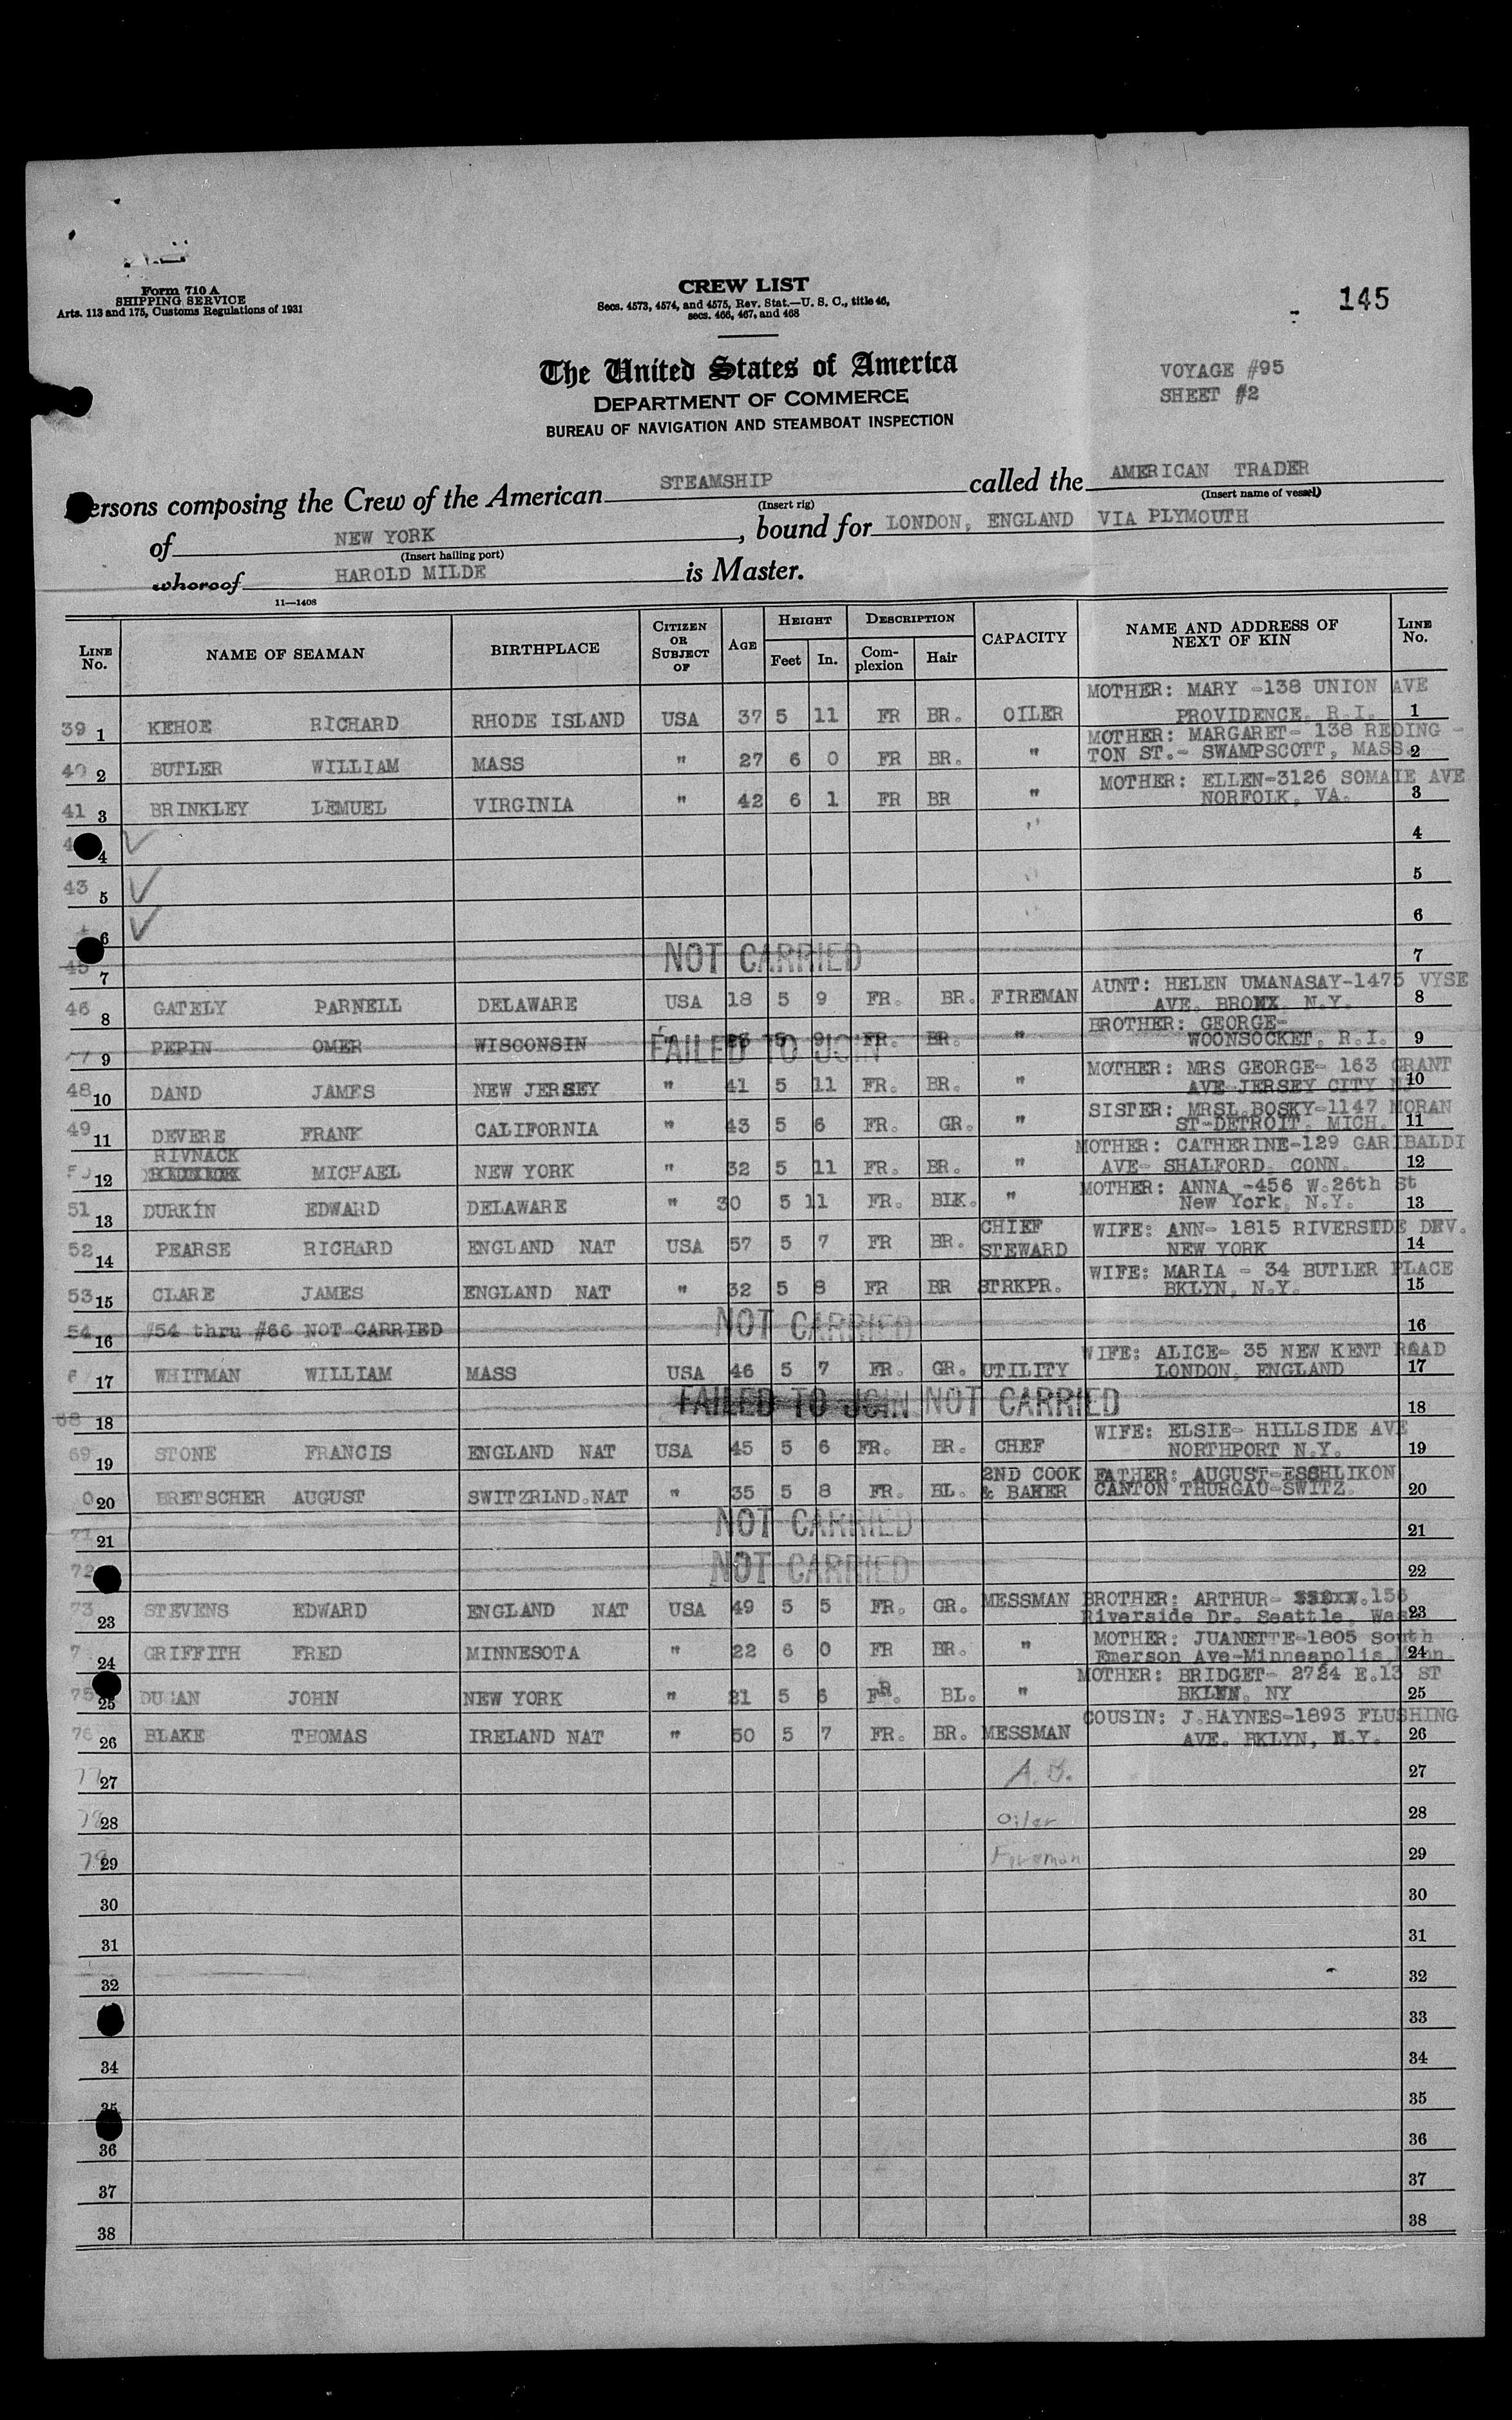 Form 710 A
SHIPPING SERVICE
Arts. 113 and 175, Customs Regulations of 1931
CREW LIST
Secs. 4573, 4574, and 4575, Rev. Stat.—U. S. C., title 46,
secs. 466, 467, and 468
145
The United States of America
DEPARTMENT OF COMMERCE
BUREAU OF NAVIGATION AND STEAMBOAT INSPECTION
VOYAGE #95
SHEET #2
ersons composing the Crew of the American STEAMSHIP called the AMERICAN TRADER
(Insert rig) (Insert name of vessel)
of NEW YORK, bound for LONDON, ENGLAND VIA PLYMOUTH
(Insert hailing port)
whereof HAROLD MILDE is Master.
11—1408
LINE No. NAME OF SEAMAN BIRTHPLACE CITIZEN OR SUBJECT OF AGE HEIGHT Feet In. DESCRIPTION Complexion Hair CAPACITY NAME AND ADDRESS OF NEXT OF KIN LINE No.
MOTHER: MARY -138 UNION AVE
39 1 KEHOE RICHARD RHODE ISLAND USA 37 5 11 FR BR. OILER PROVIDENCE, R.I. 1
MOTHER: MARGARET- 138 REDING -
40 2 BUTLER WILLIAM MASS " 27 6 0 FR BR. " TON ST.- SWAMPSCOTT, MASS. 2
MOTHER: ELLEN-3126 SOMAIE AVE
41 3 BRINKLEY LEMUEL VIRGINIA " 42 6 1 FR BR " NORFOLK, VA. 3
4 ✓ " 4
43 5 ✓ " 5
6 ✓ " 6
45 7 NOT CARRIED 7
AUNT: HELEN UMANASAY-1475 VYSE
46 8 GATELY PARNELL DELAWARE USA 18 5 9 FR. BR. FIREMAN AVE. BRONX, N.Y. 8
BROTHER: GEORGE-
9 PEPIN OMER WISCONSIN FAILED TO JOIN 5 9 FR. BR. " WOONSOCKET, R.I. 9
MOTHER: MRS GEORGE- 163 GRANT
48 10 DAND JAMES NEW JERSEY " 41 5 11 FR. BR. " AVE-JERSEY CITY NJ 10
SISTER: MRSL.BOSKY-1147 MORAN
49 11 DEVERE FRANK CALIFORNIA " 43 5 6 FR. GR. " ST-DETROIT, MICH. 11
RIVNACK MOTHER: CATHERINE-129 GARIBALDI
12 MICHAEL NEW YORK " 32 5 11 FR. BR. " AVE- SHALFORD, CONN. 12
MOTHER: ANNA -456 W.26th St
51 13 DURKIN EDWARD DELAWARE " 30 5 11 FR. BLK. " New York, N.Y. 13
CHIEF WIFE: ANN- 1815 RIVERSIDE DEV.
52 14 PEARSE RICHARD ENGLAND NAT USA 57 5 7 FR BR. STEWARD NEW YORK 14
WIFE: MARIA - 34 BUTLER PLACE
53 15 CLARE JAMES ENGLAND NAT " 32 5 8 FR BR STRKPR. BKLYN, N.Y. 15
54 16 #54 thru #66 NOT CARRIED NOT CARRIED 16
WIFE: ALICE- 35 NEW KENT ROAD
17 WHITMAN WILLIAM MASS USA 46 5 7 FR. GR. UTILITY LONDON, ENGLAND 17
68 18 FAILED TO JOIN NOT CARRIED 18
WIFE: ELSIE- HILLSIDE AVE
69 19 STONE FRANCIS ENGLAND NAT USA 45 5 6 FR. BR. CHEF NORTHPORT N.Y. 19
2ND COOK FATHER: AUGUST-ESSHLIKON
0 20 BRETSCHER AUGUST SWITZRLND.NAT " 35 5 8 FR. BL. & BAKER CANTON THURGAU-SWITZ. 20
71 21 NOT CARRIED 21
72 NOT CARRIED 22
MESSMAN BROTHER: ARTHUR- 156
73 23 STEVENS EDWARD ENGLAND NAT USA 49 5 5 FR. GR. Riverside Dr. Seattle, Wash 23
MOTHER: JUANETTE-1805 South
7 24 GRIFFITH FRED MINNESOTA " 22 6 0 FR BR. " Emerson Ave-Minneapolis, Minn 24
MOTHER: BRIDGET- 2724 E.13 ST
75 25 DUGAN JOHN NEW YORK " 21 5 6 FR. BL. " BKLYN, NY 25
COUSIN: J.HAYNES-1893 FLUSHING
76 26 BLAKE THOMAS IRELAND NAT " 50 5 7 FR. BR. MESSMAN AVE. BKLYN, N.Y. 26
77 27 A.B. 27
78 28 Oiler 28
79 29 Fireman 29
30 30
31 31
32 32
33
34 34
35 35
36 36
37 37
38 38